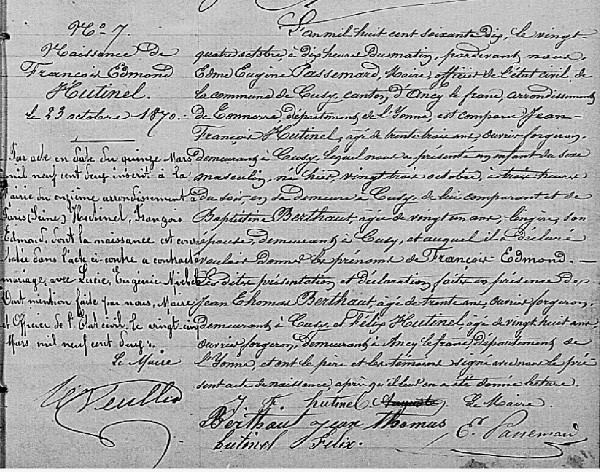 No 7.
Naissance de
François Edmond
Hutinel.
le 23 octobre 1870.
Par acte en date du quinze Mars
mil neuf cent deux inscrit à la
Mairie du onzième arrondissement à
Paris (Seine) Hutinel, François
Edmond, dont la naissance est cons
tatée dans l'acte ci-contre a contracté
mariage avec Lucie, Eugénie
Dont mention faite par nous, Maire
et Officier de l'Etat civil, le vingt cinq
Mars mil neuf cent deux.
Le Maire
L'an mil huit cent soixante dix, le vingt
quatre octobre, à dix heures du matin, pardevant nous
Edme Eugène Passemard, Maire, officier de l'état civil de
la commune de Cusy, canton d'Ancy le franc, arrondissement
de Tonnerre, département de l'Yonne, est comparu Jean-
François Hutinel, âgé de trente trois ans, ouvrier forgeron,
demeurant à Cusy, lequel nous a présenté un enfant du sexe
masculin, né hier, vingt trois octobre, à trois heures
du soir, en sa demeure à Cusy, de lui comparant et de
Baptistine Berthaut, âgée de vingt ans, son
épouse, demeurant à Cusy, et auquel il a déclaré
vouloir donner les prénoms de François Edmond. —
Les dites présentation et déclaration faites en présence de
Jean Thomas Berthaut, âgé de trente ans, ouvrier forgeron,
demeurant à Cusy et Félix Hutinel, âgé de vingt huit ans
ouvrier forgeron, demeurant à Ancy le franc, département de
l'Yonne, et ont le père et les témoins signé avec nous le pré
sent acte de naissance, après qu'il leur en a été donné lecture.
J. F. hutinel Le Maire
Berthaut jean thomas E. Passemard
hutinel Félix.